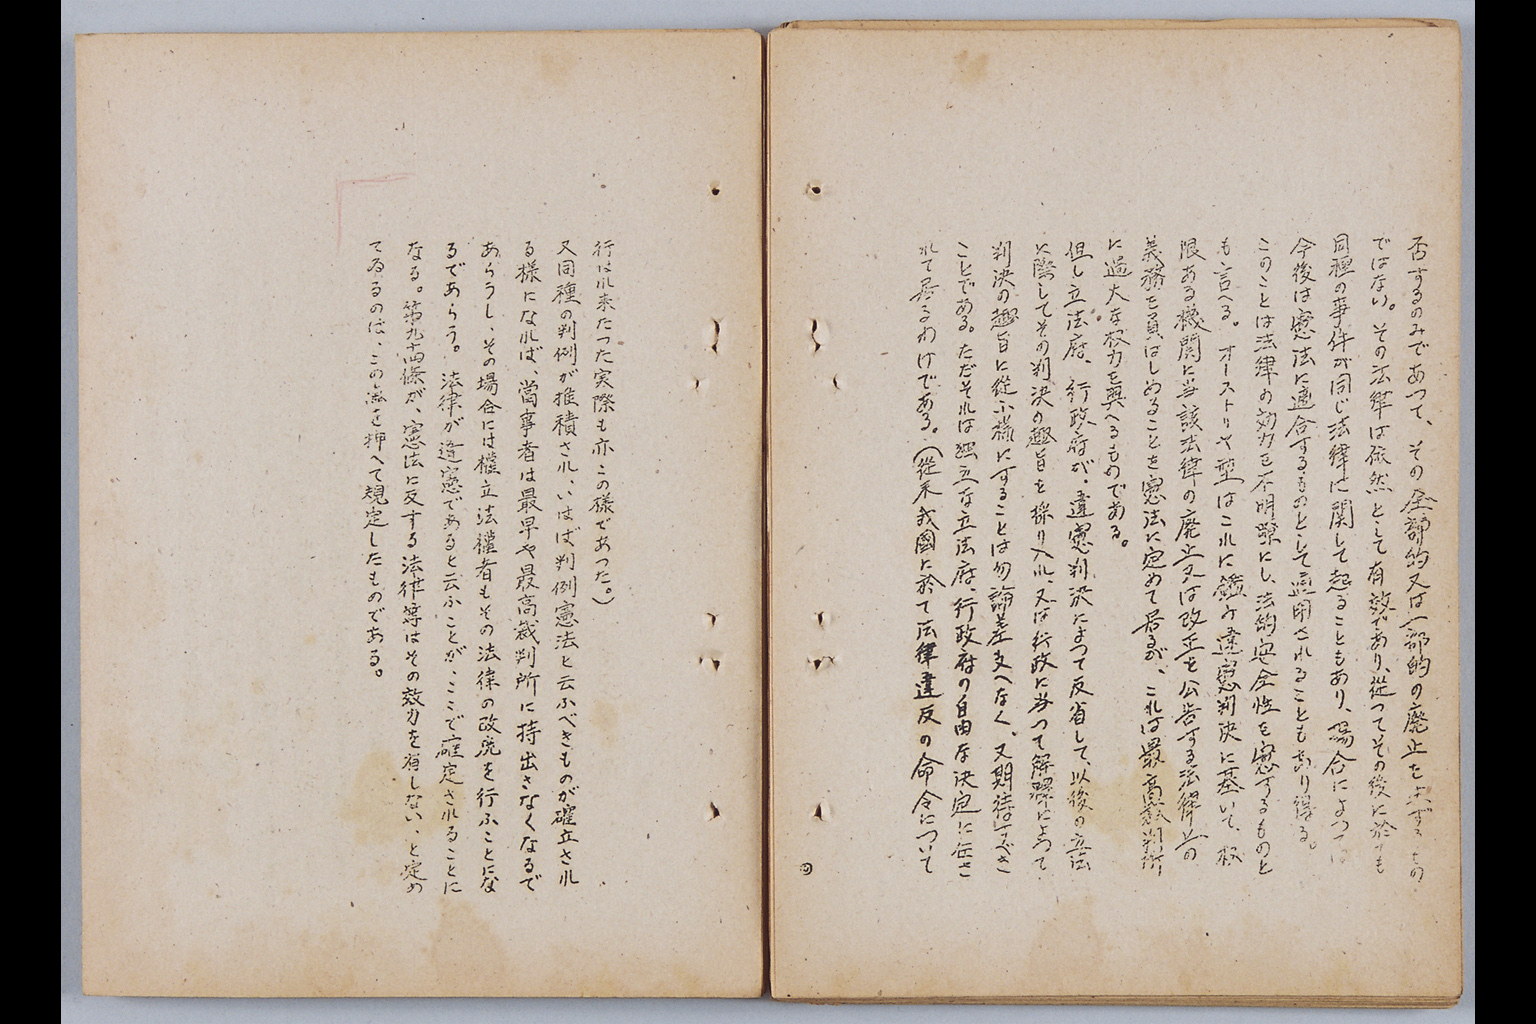 否するのみであつて、その全部的又は一部的の廃止を来すもの
ではない。その法律は依然として有効であり、従つてその後に於ても
同種の事件が同じ法律に関して起ることもあり、場合によつては
今後は憲法に適合するものとして適用されることもあり得る。
このことは法律の効力を不明瞭にし、法的安全性を害するものと
も言へる。オーストリヤ型はこれに鑑み違憲判決に基いて、権
限ある機関に当該法律の廃止又は改正を公告する法律上の
義務を負はしめることを憲法に定めて居るが、これは最高裁判所
に過大な权力を与へるものである。
但し立法府、行政府が、違憲判決によつて反省して、以後の立法
に際してその判決の趣旨を採り入れ、又は行政に当つて解釋によつて
判決の趣旨に従ふ様にすることは勿論差支へなく、又期待すべき
ことである。ただそれは独立な立法府、行政府の自由な決定に任さ
れて居るわけである。(従来我國に於て法律違反の命令について
行はれ来たつた実際も亦この様であつた。)
又同種の判例が推積され、いはば判例憲法と云ふべきものが確立され
る様になれば、當事者は最早や最高裁判所に持出さなくなるで
あらうし、その場合には権立法権者もその法律の改廃を行ふことにな
るであらう。法律が違憲であると云ふことが、ここで確定されることに
なる。第九十四條が、憲法に反する法律等はその效力を有しない、と定め
てゐるのは、この点を押へて規定したものである。